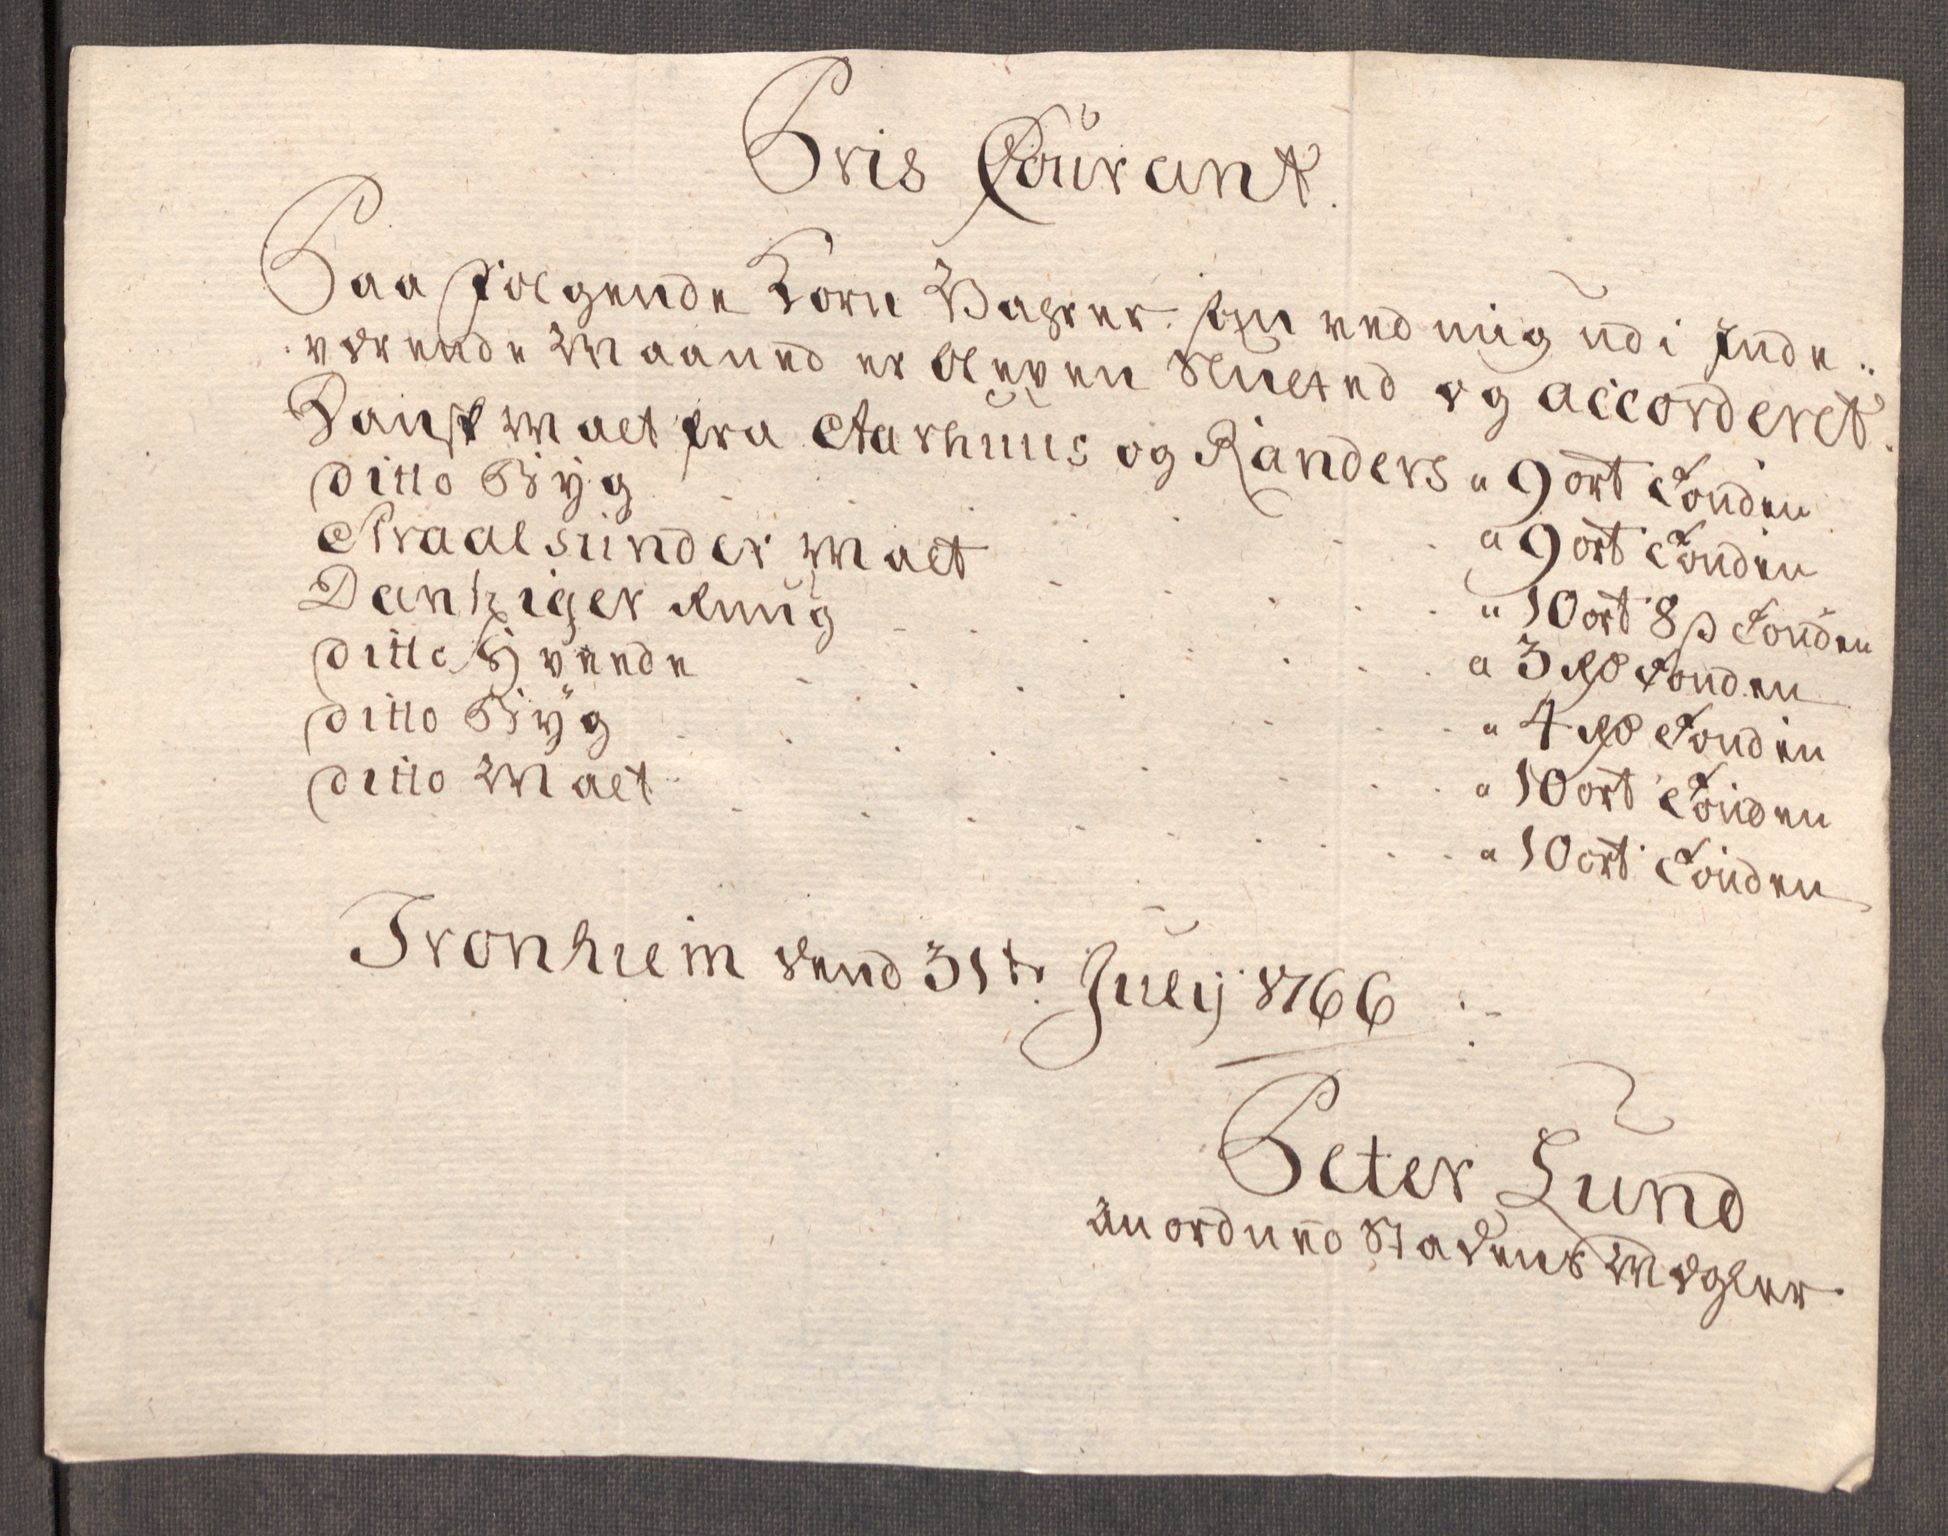 Pris Courant.
Paa følgende Korn Vahrer som ved mig udi Inde..
værende Maaned er bleven Slutted og accorderet.
Dansk Malt fra Aarhuus og Randers a 9 ort Tønden
ditto Byg a 9 ort Tønden
Straalsunder Malt a 10 ort 8 s Tønden
Dantziger Rug a 3 Rd Tønden
ditto Hveede a 4 Rd Tønden
ditto Byg a 10 ort Tønden
ditto Malt a 10 ort Tønden
Tronhiem dend 31te July 1766
Peter Lund
anordned Stadens Mægler